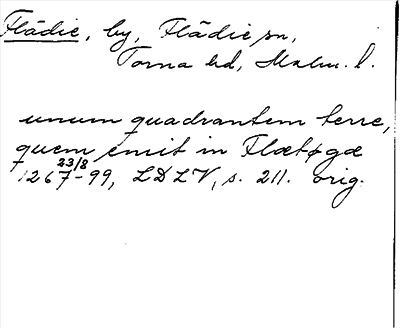 Flädie, by, Flädie sn,
Torna hd, Malm. l.
unum quadrantem terre,
quem emit in Flætøgæ
23/8
1267-99, LDLV, s. 211. orig.